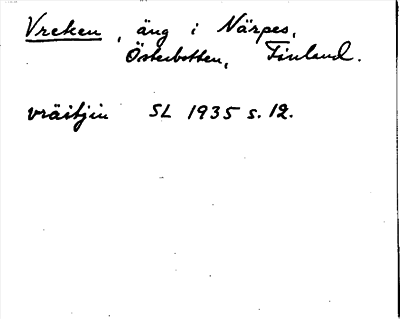 Vreken, äng i Närpes,
Österbotten, Finland.
vräitjin SL 1935 s. 12.